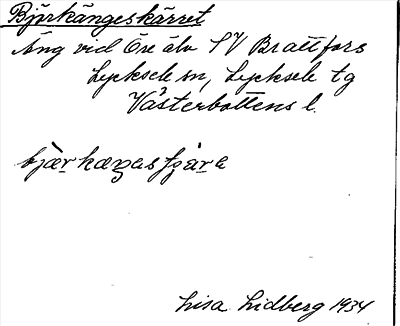 Björkängeskärret
Äng vid Öre älv SV Brattfors
Lycksele sn, Lycksele tg
Västerbottens l.
Lisa Lidberg 1934